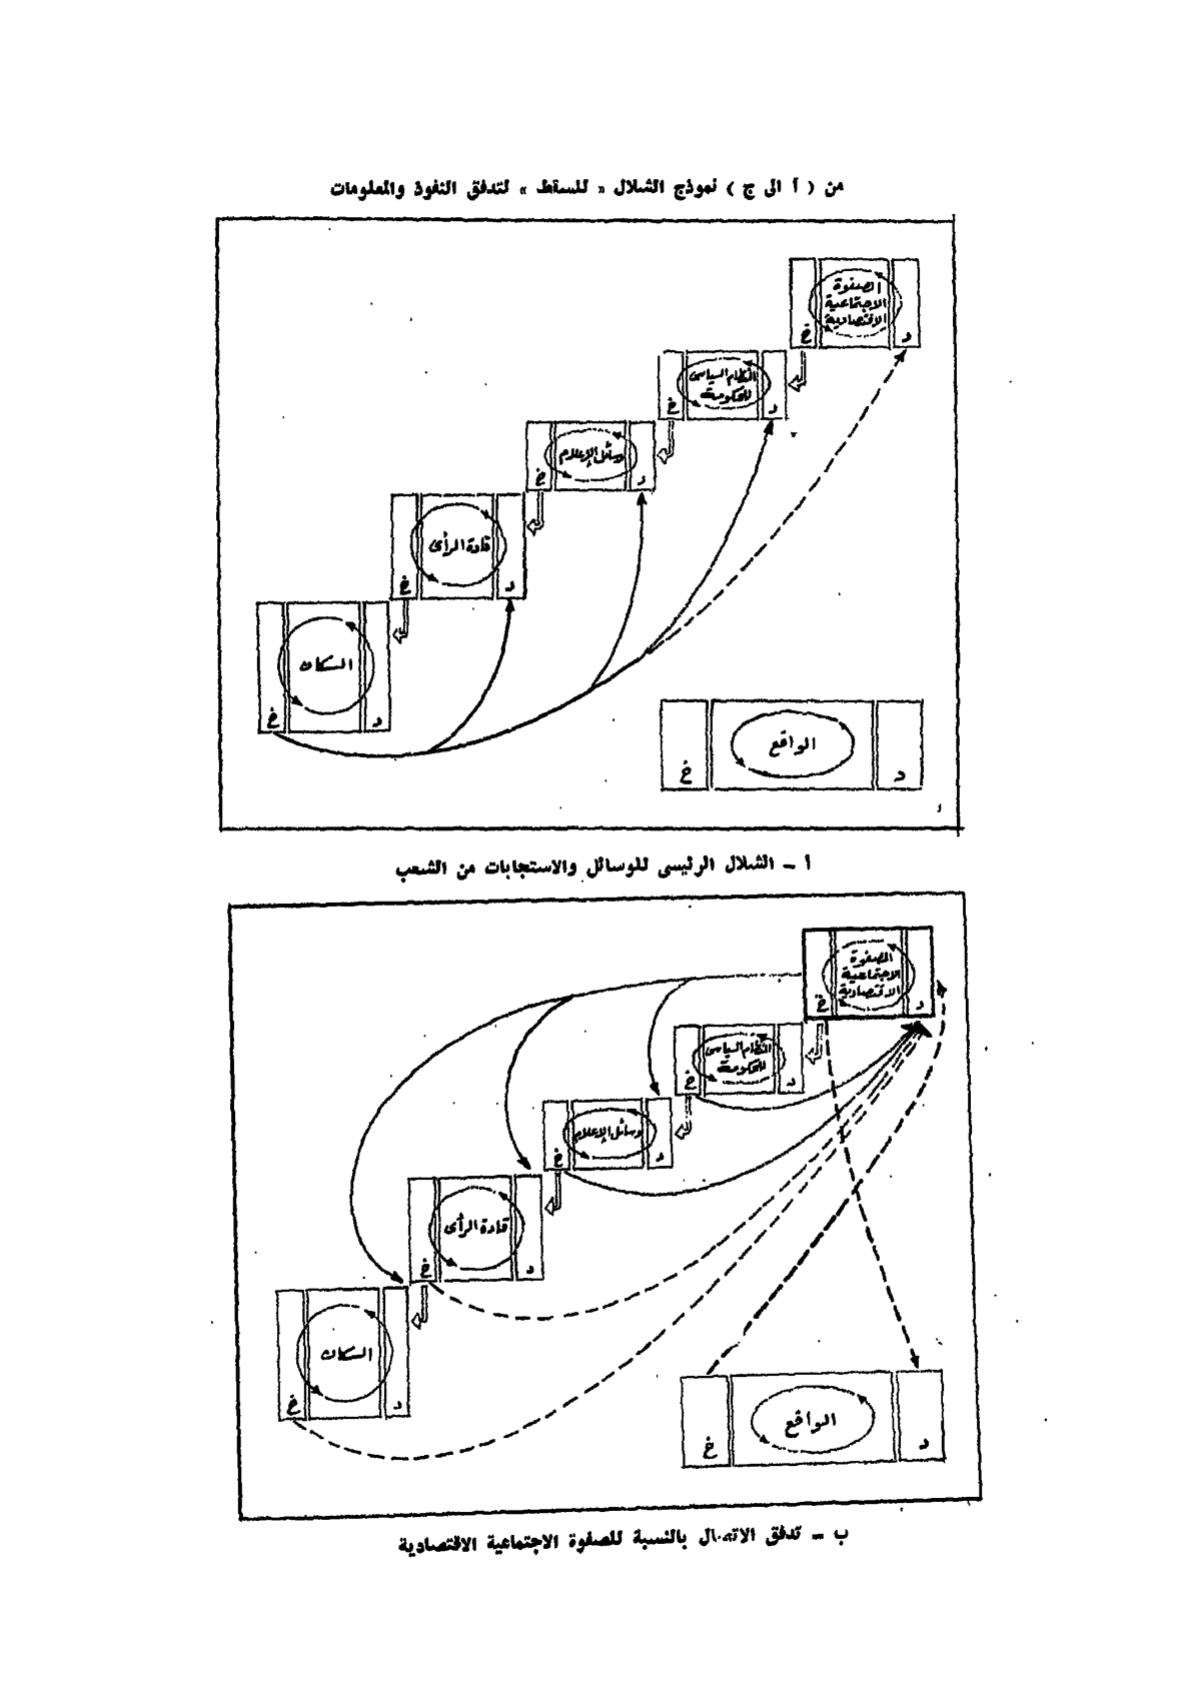 من ( أ الى ج ) نموذج الشلال « للسقط » لتدفق النفوذ والمعلومات
الصفوة
الاجتماعية
الاقتصادية
د
خ
النظام السياسى
للحكومة
د
خ
وسائل الإعلام
د
خ
قادة الرأى
د
خ
السكان
د
خ
الواقع
د
خ
أ ــ الشلال الرئيسى للوسائل والاستجابات من الشعب
الصفوة
الاجتماعية
الاقتصادية
د
خ
النظام السياسى
للحكومة
د
خ
وسائل الإعلام
د
خ
قادة الرأى
د
خ
السكان
د
خ
الواقع
د
خ
ب ــ تدفق الاتصال بالنسبة للصفوة الاجتماعية الاقتصادية